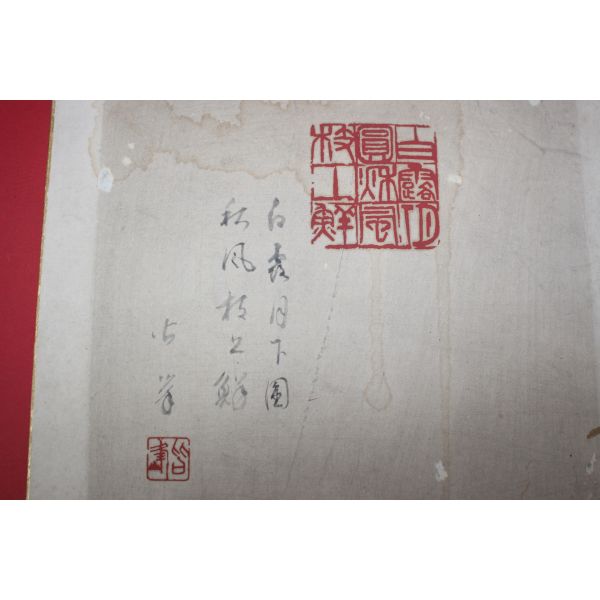 白露月下
圓秋風
枝上鮮
白露月下圓
秋風枝上鮮